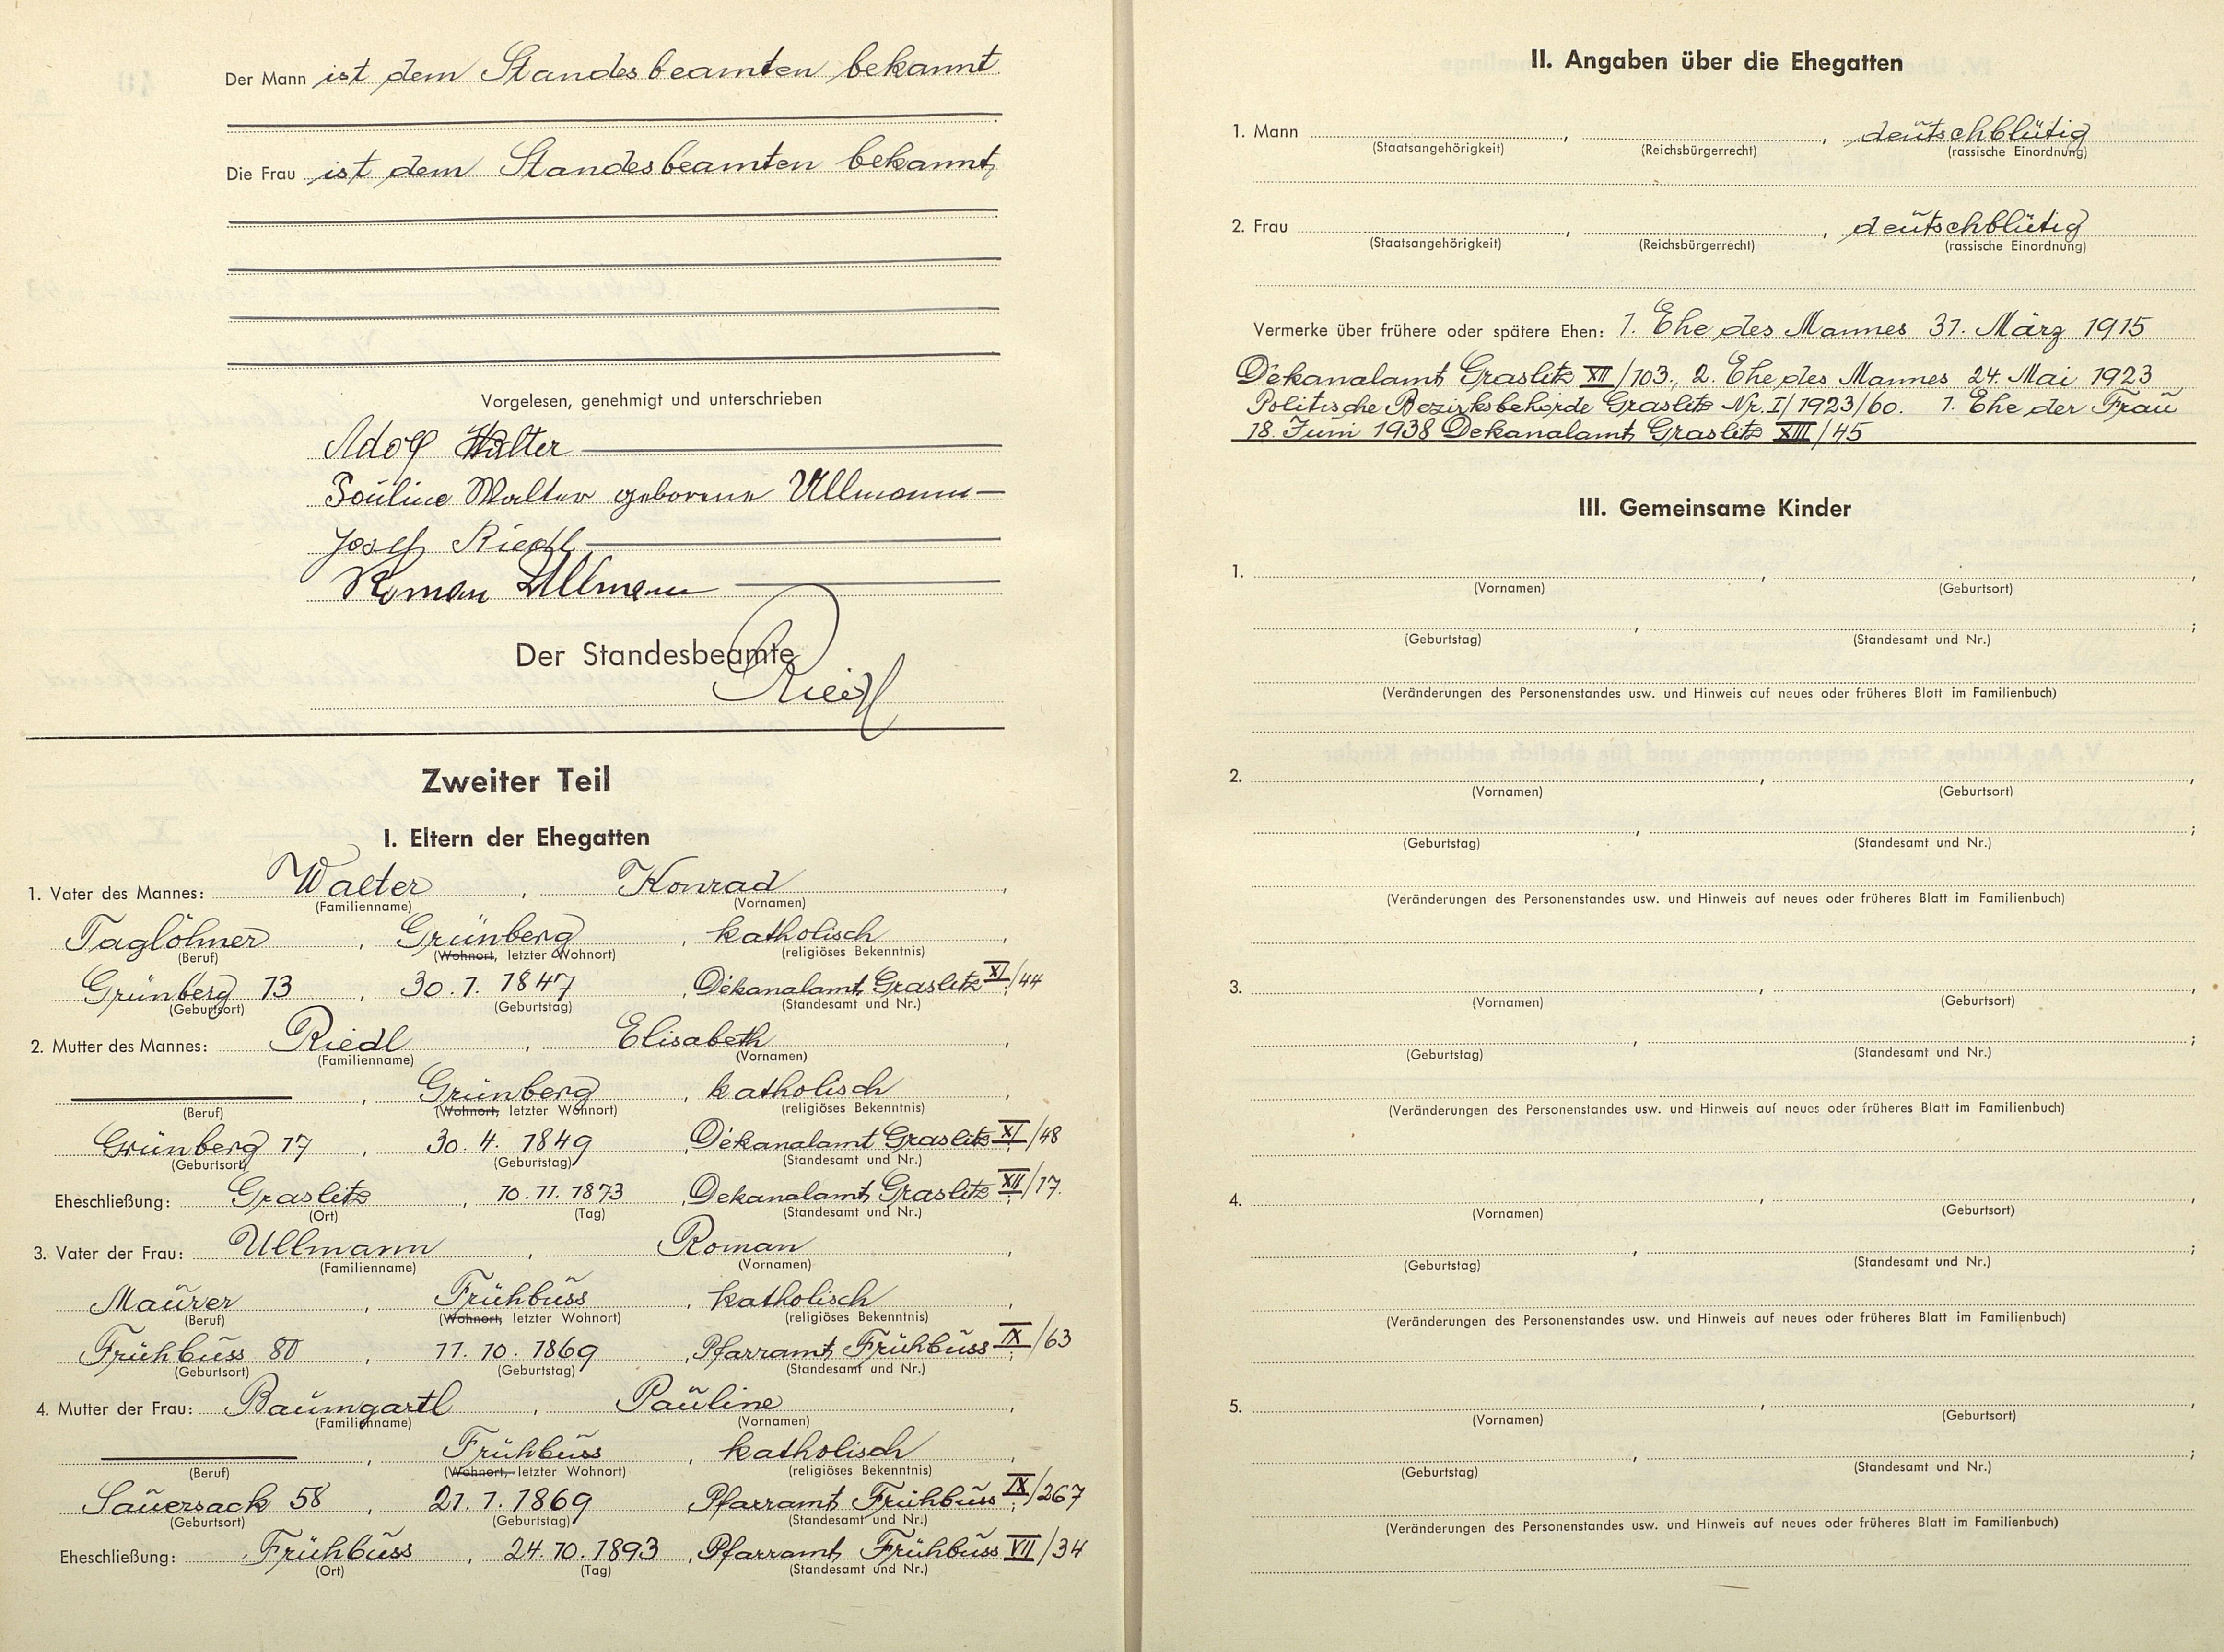 Der Mann ist dem Standesbeamten bekannt
Die Frau ist dem Standesbeamten bekannt,
Vorgelesen, genehmigt und unterschrieben
Adolf Walter
Pauline Walter geborene Ullmann
Josef Riedl
Roman Ullmann
Der Standesbeamte
Riedl
Zweiter Teil
I. Eltern der Ehegatten
1. Vater des Mannes: Walter, Konrad,
(Familienname) (Vornamen)
Taglöhner, Grünberg, katholisch,
(Beruf) (Wohnort, letzter Wohnort) (religiöses Bekenntnis)
Grünberg 13, 30. 1. 1847, Dekanalamt Graslitz XI/44;
(Geburtsort) (Geburtstag) (Standesamt und Nr.)
2. Mutter des Mannes: Riedl, Elisabeth,
(Familienname) (Vornamen)
, Grünberg, katholisch,
(Beruf) (Wohnort, letzter Wohnort) (religiöses Bekenntnis)
Grünberg 17, 30. 4. 1849, Dekanalamt Graslitz XI/48;
(Geburtsort) (Geburtstag) (Standesamt und Nr.)
Eheschließung: Graslitz, 10. 11. 1873, Dekanalamt Graslitz XII/17.
(Ort) (Tag) (Standesamt und Nr.)
3. Vater der Frau: Ullmann, Roman,
(Familienname) (Vornamen)
Maurer, Frühbuss, katholisch,
(Beruf) (Wohnort, letzter Wohnort) (religiöses Bekenntnis)
Frühbuss 80, 11. 10. 1869, Pfarramt Frühbuss IX/63;
(Geburtsort) (Geburtstag) (Standesamt und Nr.)
4. Mutter der Frau: Baumgartl, Pauline,
(Familienname) (Vornamen)
, Frühbuss, katholisch,
(Beruf) (Wohnort, letzter Wohnort) (religiöses Bekenntnis)
Sauersack 58, 21. 1. 1869, Pfarramt Frühbuss IX/267;
(Geburtsort) (Geburtstag) (Standesamt und Nr.)
Eheschließung: Frühbuss, 24. 10. 1893, Pfarramt Frühbuss VII/34
(Ort) (Tag) (Standesamt und Nr.)
II. Angaben über die Ehegatten
1. Mann , , deutschblütig
(Staatsangehörigkeit) (Reichsbürgerrecht) (rassische Einordnung)
2. Frau , , deutschblütig
(Staatsangehörigkeit) (Reichsbürgerrecht) (rassische Einordnung)
Vermerke über frühere oder spätere Ehen: 1. Ehe des Mannes 31. März 1915
Dekanalamt Graslitz XII/103., 2. Ehe des Mannes 24. Mai 1923
Politische Bezirksbehörde Graslitz Nr. I/1923/60. 1. Ehe der Frau
18. Juni 1938 Dekanalamt Graslitz XIII/45
III. Gemeinsame Kinder
1. , ,
(Vornamen) (Geburtsort)
, ;
(Geburtstag) (Standesamt und Nr.)
(Veränderungen des Personenstandes usw. und Hinweis auf neues oder früheres Blatt im Familienbuch)
2. , ,
(Vornamen) (Geburtsort)
, ;
(Geburtstag) (Standesamt und Nr.)
(Veränderungen des Personenstandes usw. und Hinweis auf neues oder früheres Blatt im Familienbuch)
3. , ,
(Vornamen) (Geburtsort)
, ;
(Geburtstag) (Standesamt und Nr.)
(Veränderungen des Personenstandes usw. und Hinweis auf neues oder früheres Blatt im Familienbuch)
4. , ,
(Vornamen) (Geburtsort)
, ;
(Geburtstag) (Standesamt und Nr.)
(Veränderungen des Personenstandes usw. und Hinweis auf neues oder früheres Blatt im Familienbuch)
5. , ,
(Vornamen) (Geburtsort)
, ;
(Geburtstag) (Standesamt und Nr.)
(Veränderungen des Personenstandes usw. und Hinweis auf neues oder früheres Blatt im Familienbuch)